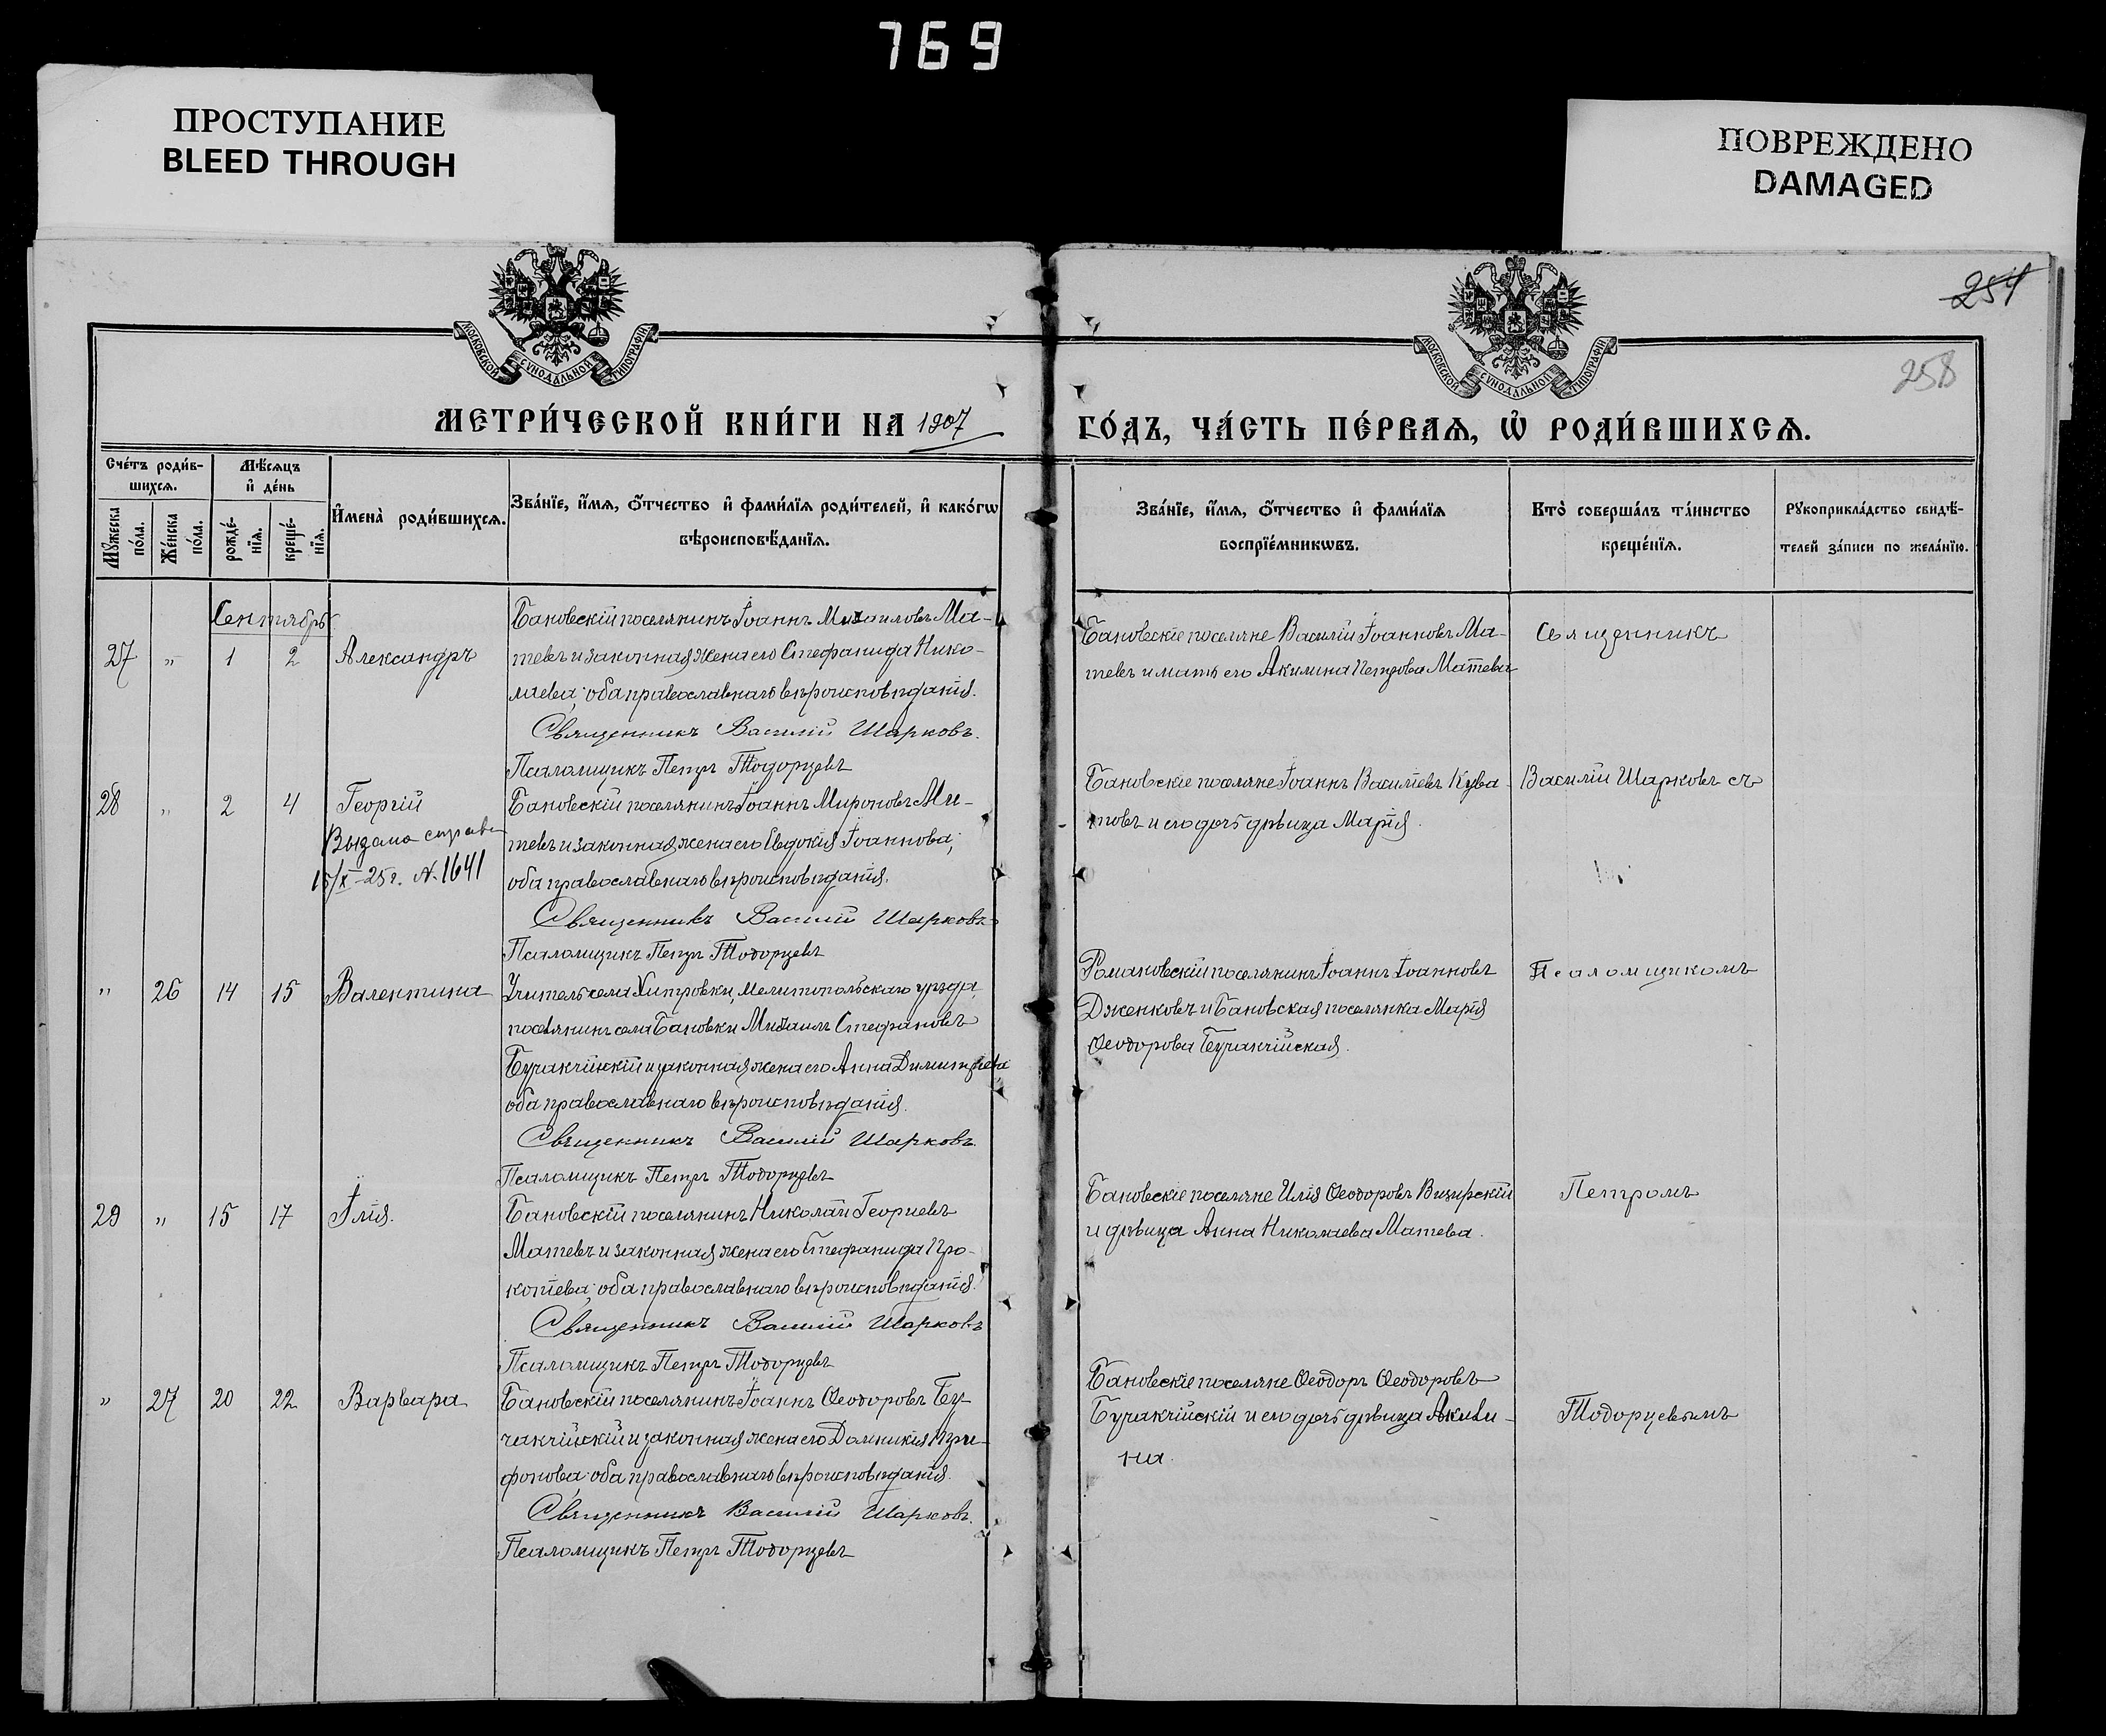 769
ПРОСТУПАНИЕ
BLEED THROUGH
ПОВРЕЖДЕНО
DAMAGED
МОСКОВСКОЙ СѴНОДАЛЬНОЙ ТИПОГРАФІИ
МОСКОВСКОЙ СѴНОДАЛЬНОЙ ТИПОГРАФІИ
254
258
МЕТРИ́ЧЕСКОЙ КНИ́ГИ НА 1907
ГО́ДЪ, ЧА́СТЬ ПЕ́РВАѦ, Ѡ҆ РОДИ́ВШИХСѦ.
Сче́тъ роди́в-
шихсѧ.
Мѣ́сѧцъ
и҆ де́нь
Мꙋ́жеска
по́ла.
Же́нска
по́ла.
рожде́-
нїѧ.
креще́-
нїѧ.
И҆мена̀ роди́вшихсѧ.
Зва́нїе, и҆́мѧ, ѻ҆́тчество и҆ фами́лїѧ роди́телей, и҆ како́гѡ
вѣроисповѣ́данїѧ.
Зва́нїе, и҆́мѧ, ѻ҆́тчество и҆ фами́лїѧ
воспрїе́мникѡвъ.
Кто̀ соверша́лъ та́инство
креще́нїѧ.
Рꙋкоприкла́дство свидѣ́-
телей за́писи по жела́нїю.
Сентябрь
27 " 1 2 Александръ
Бановскій поселянинъ Іоаннъ Михаиловъ Ма-
тевъ и законная жена его Стефанида Нико-
лаева; оба православнаго вѣроисповѣданія.
Священникъ Василій Шарковъ.
Псаломщикъ Петръ Тодорцевъ
Бановскіе поселяне Василій Іоанновъ Ма-
тевъ и мать его Акилина Петрова Матева
Священникъ
28 " 2 4 Георгій
Выдана справ
15/X-25г. № 1641
Бановскій поселянинъ Іоаннъ Мироновъ Ми-
тевъ и законная жена его Евдокия Іоаннова;
оба православнаго вѣроисповѣданія.
Священникъ Василій Шарковъ
Псаломщикъ Петръ Тодорцевъ
Бановскіе поселяне Іоаннъ Василіевъ Кува-
товъ и его дочь дѣвица Марія.
Василій Шарковъ съ
" 26 14 15 Валентина
Учитель села Хитровки, Мелитопольскаго уѣзда,
поселянинъ села Бановки Михаилъ Стефановъ
Бучакчійскій и законная жена его Анна Димитріева,
оба православнаго вѣроисповѣданія.
Священникъ Василій Шарковъ.
Псаломщикъ Петръ Тодорцевъ
Романовскій поселянинъ Іоаннъ Іоанновъ
Дженковъ и Бановская поселянка Марія
Ѳеодорова Бучакчійская.
Псаломщикомъ
29 " 15 17 Илія.
Бановскій поселянинъ Николай Георгіевъ
Матевъ и законная жена его Стефанида Про-
копіева; оба православнаго вѣроисповѣданія.
Священникъ Василій Шарковъ
Псаломщикъ Петръ Тодорцевъ
Бановскіе поселяне Илія Ѳеодоровъ Визирскій
и дѣвица Анна Николаева Матева.
Петромъ
" 27 20 22 Варвара
Бановскій поселянинъ Іоаннъ Ѳеодоровъ Бу-
чакчійскій и законная жена его Домникия
фонова; оба православнаго вѣроисповѣданія.
Священникъ Василій Шарковъ.
Псаломщикъ Петръ Тодорцевъ
Бановскіе поселяне Ѳеодоръ Ѳеодоровъ
Бучакчійскій и его дочь дѣвица Акили-
на.
Тодорцевымъ